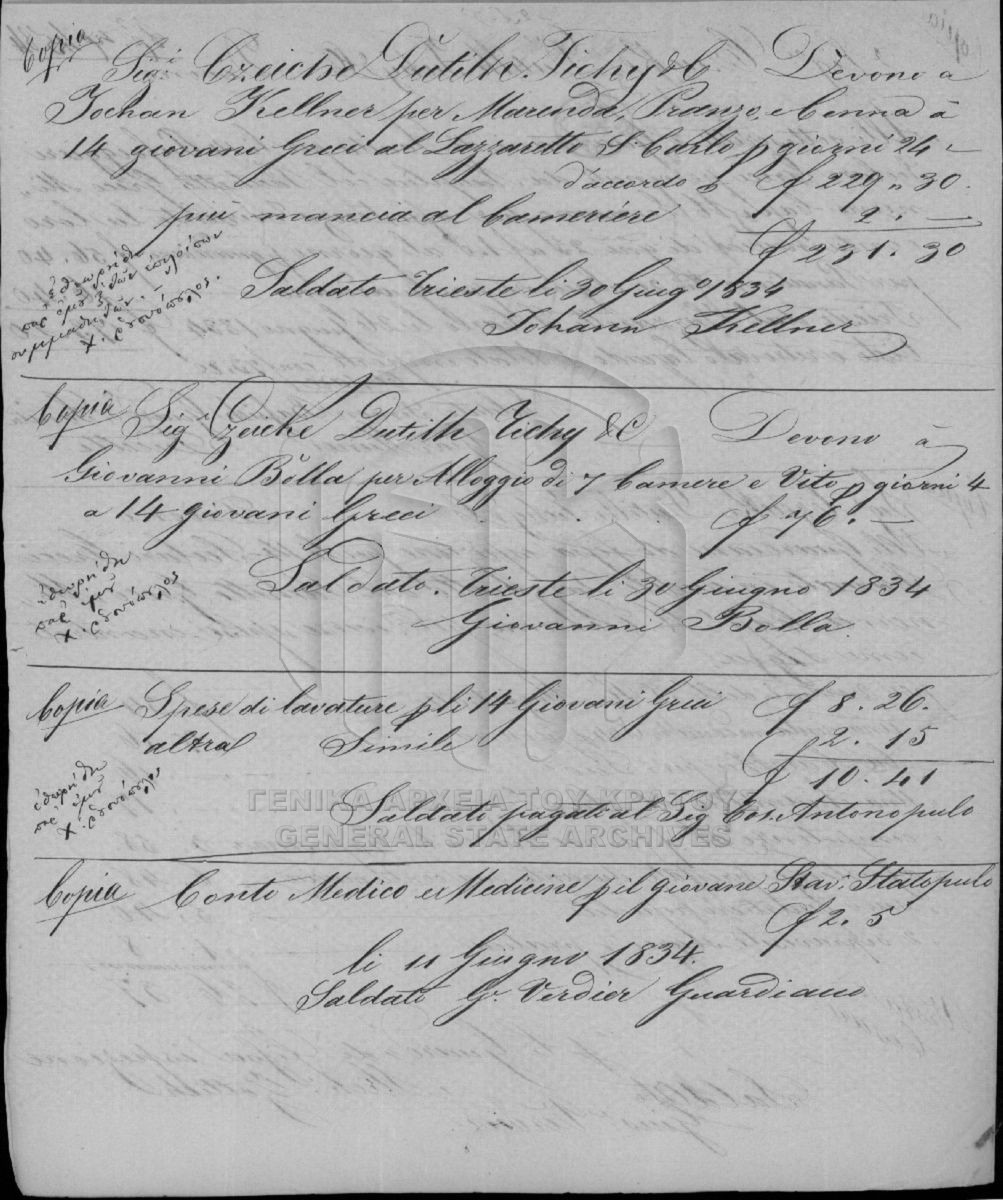 Copia
Sigi Czeicke Dutilh Tichy & C. Devono a
Johan Kellner per Marenda, Pranzo, e Cenna à
14 giovani Greci al Lazzaretto S. Carlo p giorni 24
d'accordo p f 229 " 30.
più mancia al Cameriere 2. —
f 231. 30
ἐθεωρήθη
παρ' ἐμοῦ
συμμαθητῶν
Χ.
Saldato Trieste li 30 Giugo 1834
Johann Kellner
Copia Sigi Czeicke Dutilh Tichy & C Devono à
Giovanni Bolla per Alloggio di 7 Camere e Vito p giorni 4
a 14 giovani Greci . . . . f 76. —
ἐθεωρήθη
παρ' ἐμοῦ
Χ.
Saldato. Trieste li 30 Giugno 1834
Giovanni Bolla
Copia Spese di lavature p li 14 Giovani Greci f 8. 26.
altra Simile f 2. 15
f 10. 41
ἐθεωρήθη
παρ' ἐμοῦ
Χ.
ΓΕΝΙΚΑ ΑΡΧΕΙΑ ΤΟΥ ΚΡΑΤΟΥΣ
GENERAL STATE ARCHIVES
Saldato pagato al Sig Cos. Antonopulo
Copia Conto Medico e Medicine p il giovane Stav. Statopulo
f 2. 5
li 11 Giugno 1834.
Saldato G. Verdier Guardiano